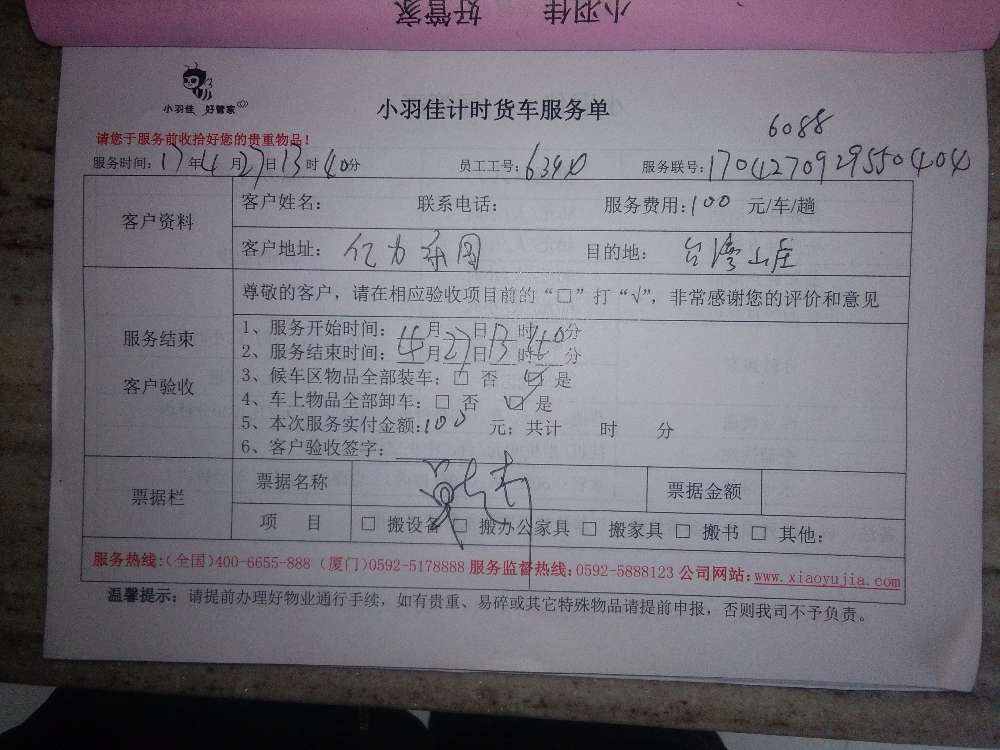 小羽佳 好管家
小羽佳 好管家
小羽佳计时货车服务单
6088
请您于服务前收拾好您的贵重物品！
服务时间：17年4月27日13时40分 员工工号： 服务联号：1704270929550404
客户资料 客户姓名： 联系电话： 服务费用：100 元/车/趟
客户地址：亿力 目的地：台湾山庄
尊敬的客户，请在相应验收项目前的“□”打“√”，非常感谢您的评价和意见
服务结束
客户验收
1、服务开始时间：4月27日13时40分
2、服务结束时间：4月27日13时 分
3、候车区物品全部装车：□ 否 ☑ 是
4、车上物品全部卸车：□ 否 ☑ 是
5、本次服务实付金额：100 元；共计 时 分
6、客户验收签字：
票据栏 票据名称 票据金额
项 目 □ 搬设备 □ 搬办公家具 □ 搬家具 □ 搬书 □ 其他：
服务热线：（全国）400-6655-888（厦门）0592-5178888 服务监督热线：0592-5888123 公司网站：www.xiaoyujia.com
温馨提示：请提前办理好物业通行手续，如有贵重、易碎或其它特殊物品请提前申报，否则我司不予负责。